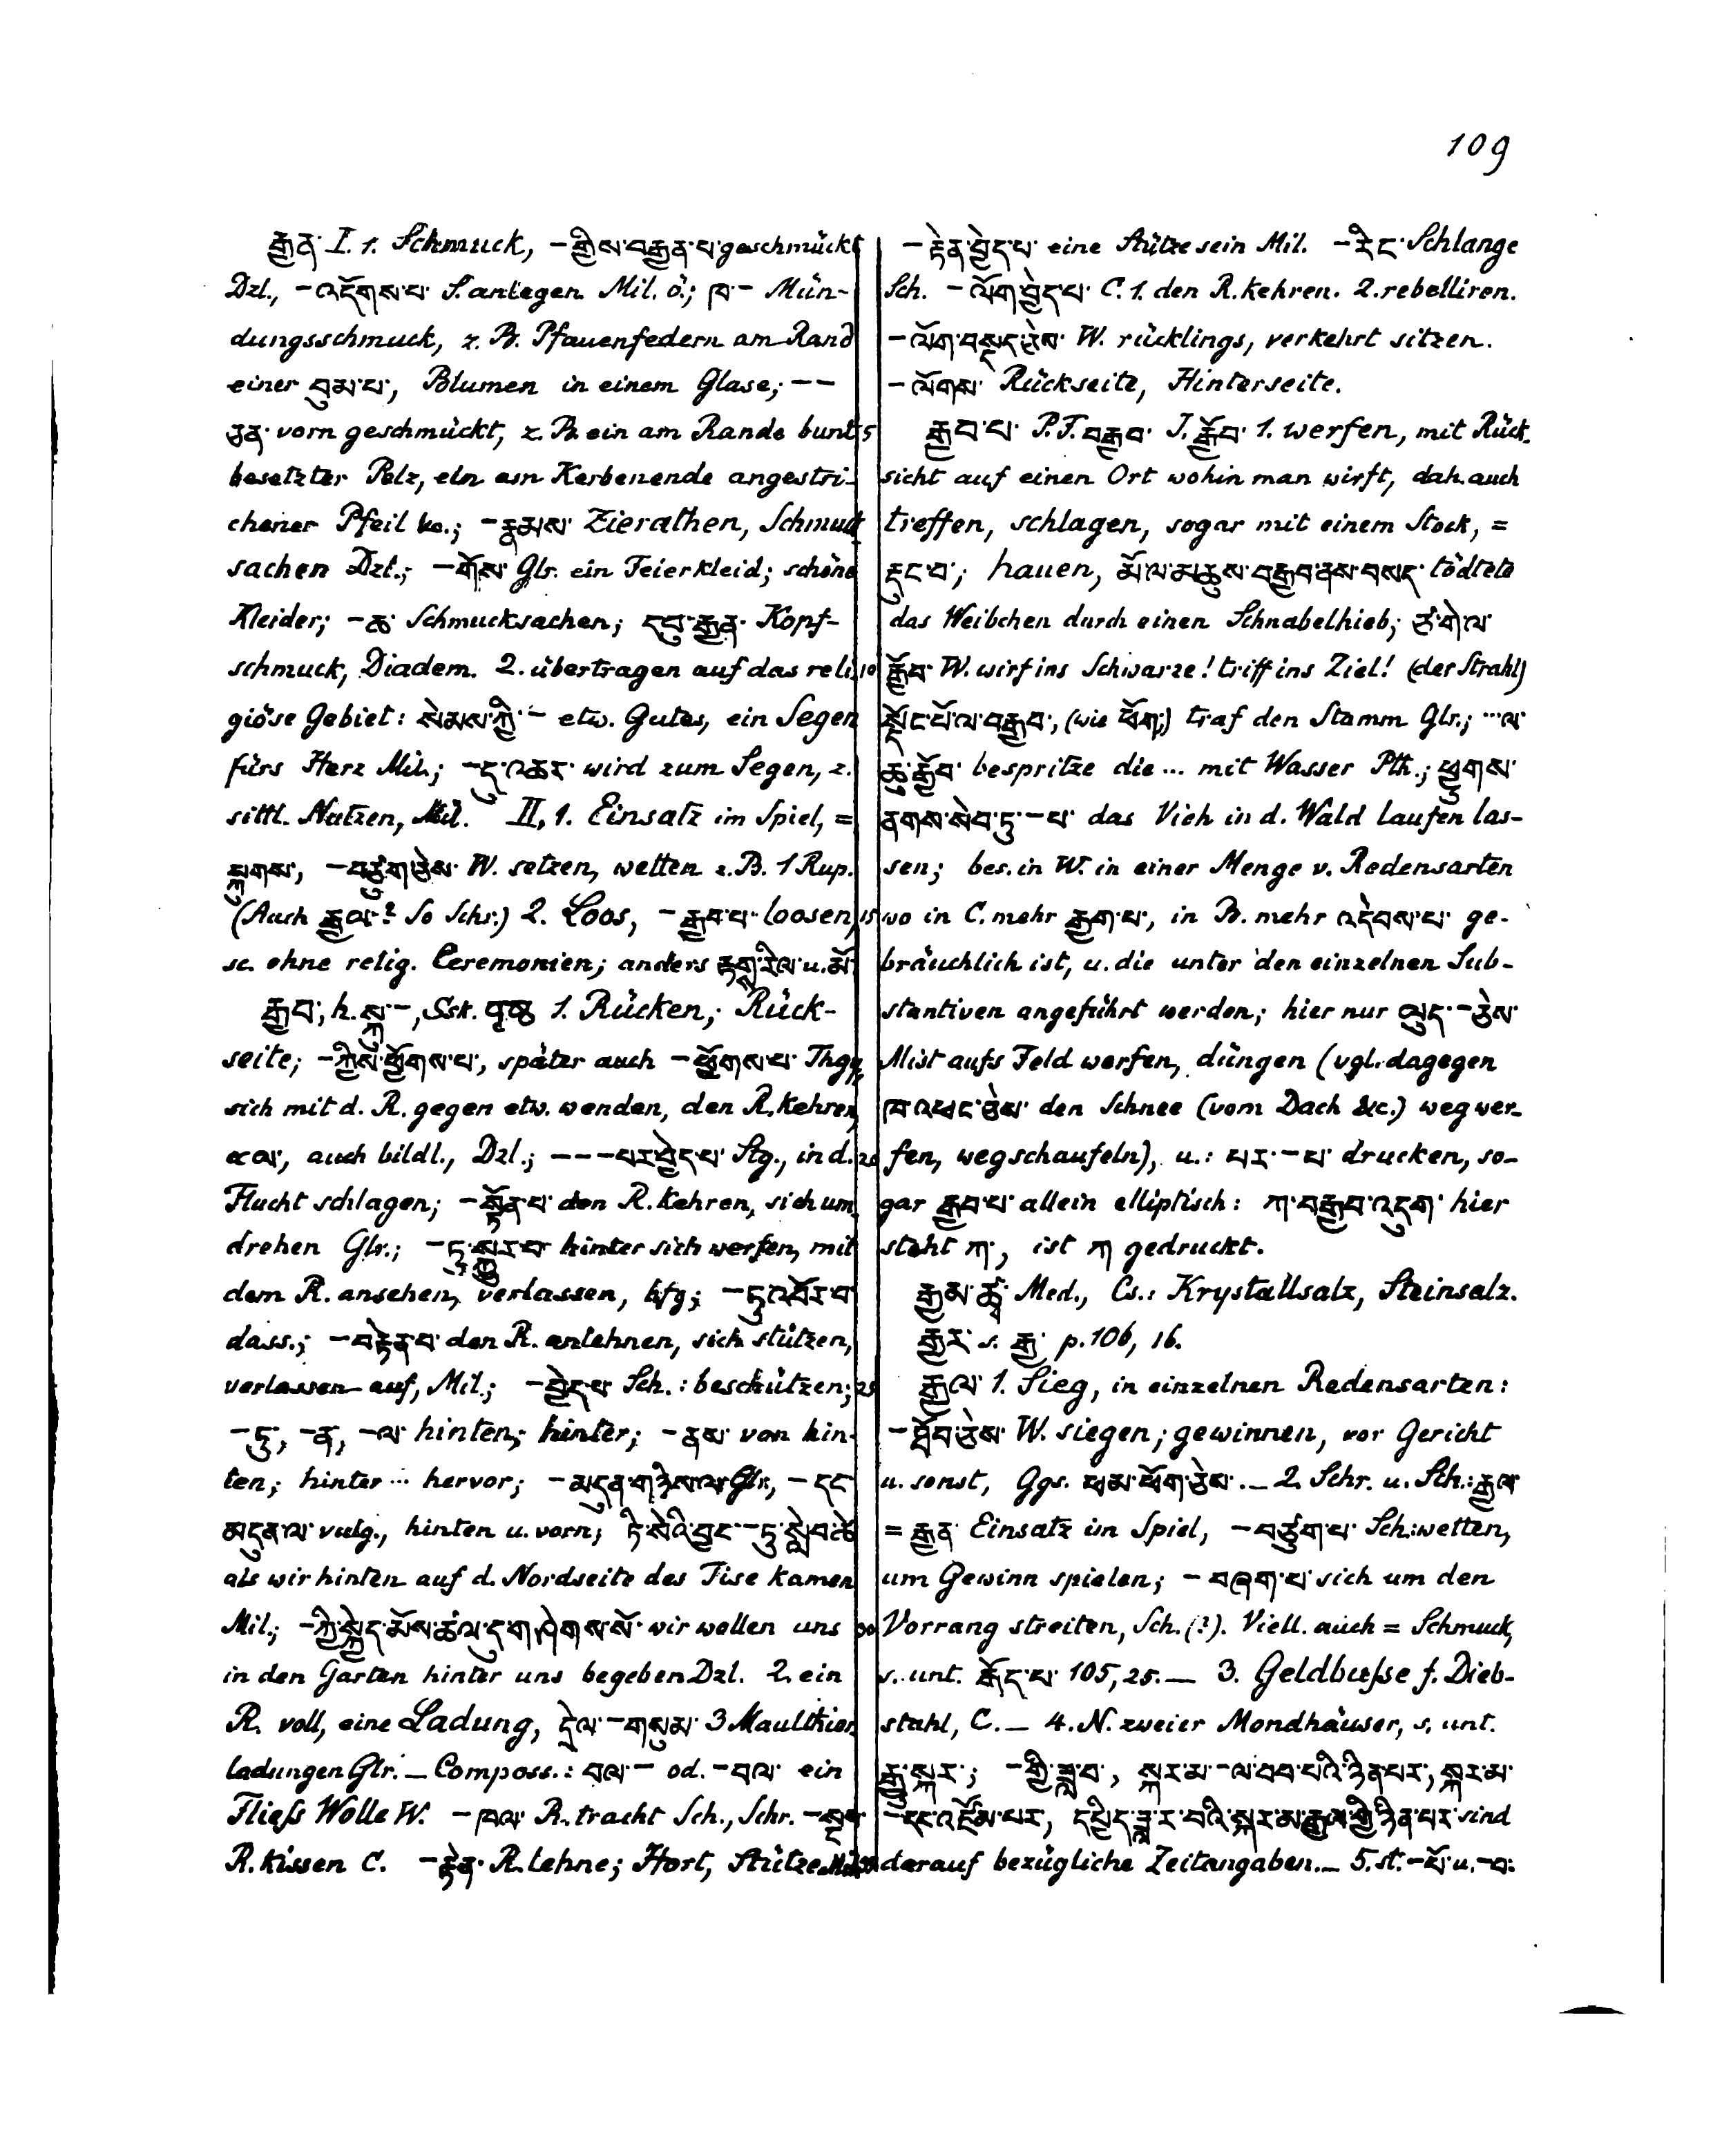 109
རྒྱན་ I. 1. Schmuck, –གྱིས་བརྒྱན་པ་ geschmückt
Dzl., –འདོགས་པ་ S. anlegen Mil. ö.; ཁ་– Mün-
dungsschmuck, z. B. Pfauenfedern am Rand
einer བུམ་པ་, Blumen in einem Glase; ––
ཅན་ vorn geschmückt, z. B. ein am Rande bunt
besetzter Pelz, ein am Kerbenende angestri-
chener Pfeil &c.; –རྣམས་ Zierathen, Schmuck
sachen Dzl.; –གོས་ Glr. ein Feierkleid; schöne
Kleider; –ཆ་ Schmucksachen; དབུ་རྒྱན་ Kopf-
schmuck, Diadem. 2. übertragen auf das reli-
giöse Gebiet: སེམས་ཀྱི་– etw. Gutes, ein Segen
fürs Herz Mil.; –དུ་འཆར་ wird zum Segen, z.
sittl. Nutzen, Mil. II, 1. Einsatz im Spiel, =
སྐྱགས་, –བཙུགཅེས་ W. setzen, wetten z. B. 1 Rup.
(Auch རྒྱལ་? So Schr.) 2. Loos, –རྒྱབ་པ་ loosen,
sc. ohne relig. Ceremonien; anders རྟགརིལ་ u. མོ་
རྒྱབ་, h. སྐུ་–, Ssk. पृष्ठ 1. Rücken, Rück-
seite; –ཀྱིས་ཕྱོགས་པ་, später auch –ཕྱོགས་པ་ Thgy,
sich mit d. R. gegen etw. wenden, den R. kehren,
auch bildl., Dzl.; –––པརབྱེད་པ་ Stg., in d.
Flucht schlagen; –སྟོན་པ་ den R. kehren, sich um-
drehen Glr.; –ཏུ་སྐྱུར་བ་ hinter sich werfen, mit
dem R. ansehen, verlassen, hfg; –ཏུ་འབོར་བ་
dass.; –བརྟེན་པ་ den R. anlehnen, sich stützen,
verlassen auf, Mil.; –བྱེད་པ་ Sch.: beschützen;
–ཏུ, –ན, –ལ་ hinten, hinter; –ནས་ von hin-
ten; hinter ... hervor; –མདུན་གཉིས་ལ་ Glr., –དང་
མདུན་ལ་ vulg., hinten u. vorn; ཏི་སེའི་བྱང་–ཏུ་སླེབ་ཚེ
als wir hinten auf d. Nordseite des Tise kamen
Mil.; –ཀྱི་སྐྱེད་མོས་ཚལ་དུ་གཤེགས་སོ་ wir wollen uns
in den Garten hinter uns begeben Dzl. 2. ein
R. voll, eine Ladung, དྲེལ་–གསུམ་ 3 Maulthier-
ladungen Glr. – Composs.: བལ་– od. –བལ་ ein
Fließ Wolle W. –ཁལ་ R. tracht Sch., Schr.
R. kissen C. –རྟེན་ R. lehne; Hort, Stütze Mil.
–རྟེན་བྱེད་པ་ eine Stütze sein Mil. –རིང་ Schlange
Sch. –ལོག་བྱེད་པ་ C. 1. den R. kehren. 2. rebelliren.
–ལོག་བསྡད་ཅེས་ W. rücklings, verkehrt sitzen.
–ལོགས་ Rückseite, Hinterseite.
5 རྒྱབ་པ་ P. F. བརྒྱབ་ I. རྒྱོབ་ 1. werfen, mit Rück-
sicht auf einen Ort wohin man wirft, dah. auch
treffen, schlagen, sogar mit einem Stock, =
རྡུང་བ་; hauen, མོ་ལ་མཆུས་བརྒྱབ་ནས་བསད་ tödtete
das Weibchen durch einen Schnabelhieb; ཙ་གེ་ལ་
10 རྒྱོབ་ W. wirf ins Schwarze! triff ins Ziel! (der Strahl)
སྡོང་པོ་ལ་བརྒྱབ་, (wie ཕོག་) traf den Stamm Glr.; ...ལ་
ཆུ་རྒྱོབ་ bespritze die ... mit Wasser Pth.; ཕྱུགས་
ནགས་སེབ་ཏུ་–པ་ das Vieh in d. Wald laufen las-
sen; bes. in W. in einer Menge v. Redensarten
15 wo in C. mehr རྒྱག་པ་, in B. mehr འདེབས་པ་ ge-
bräuchlich ist, u. die unter den einzelnen Sub-
stantiven angeführt werden; hier nur ལུད་–ཅེས་
Mist aufs Feld werfen, düngen (vgl. dagegen
ཁ་འཕང་ཅེས་ den Schnee (vom Dach &c.) wegwer-
20 fen, wegschaufeln), u.: པར་–པ་ drucken, so-
gar རྒྱབ་པ་ allein elliptisch: ཀ་བརྒྱབ་འདུག་ hier
steht ཀ་, ist ཀ gedruckt.
རྒྱམ་ཚྭ་ Med., Cs.: Krystallsalz, Steinsalz.
རྒྱར་ s. རྒྱ་ p. 106, 16.
25 རྒྱལ་ 1. Sieg, in einzelnen Redensarten:
–ཐོབ་ཅེས་ W. siegen; gewinnen, vor Gericht
u. sonst, Ggs. ཕམ་ཕོག་ཅེས་. – 2. Schr. u. Sch.: རྒྱལ་
= རྒྱན་ Einsatz im Spiel, –བཙུག་པ་ Sch.: wetten,
um Gewinn spielen; –བཞག་པ་ sich um den
30 Vorrang streiten, Sch. (?). Viell. auch = Schmuck,
s. unt. རྒྱོད་པ་ 105, 25. – 3. Geldbuße f. Dieb-
stahl, C. – 4. N. zweier Mondhäuser, s. unt.
རྒྱུ་སྐར་; –གྱི་ཟླ་བ་, སྐར་མ་–ལ་བབ་པའི་ཉིན་པར་, སྐར་མ་
–དང་འཛོམ་པར, དཔྱིད་ཟླ་ར་བའི་སྐར་མ་རྒྱལ་གྱི་ཉིན་པར་ sind
darauf bezügliche Zeitangaben. – 5. st. –པོ་ u. –བ་: